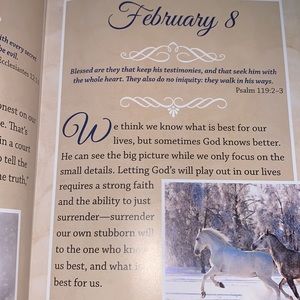 with every secret
be evil.
Ecclesiastes 12:1
onest on our
e. That's
in a court
o tell the
e truth,"
February 8
Blessed are they that keep his testimonies, and that seek him with
the whole heart. They also do no iniquity: they walk in his ways.
Psalm 119:2–3
We think we know what is best for our
lives, but sometimes God knows better.
He can see the big picture while we only focus on the
small details. Letting God's will play out in our lives
requires a strong faith
and the ability to just
surrender—surrender
our own stubborn will
to the one who know
us best, and what i
best for us.